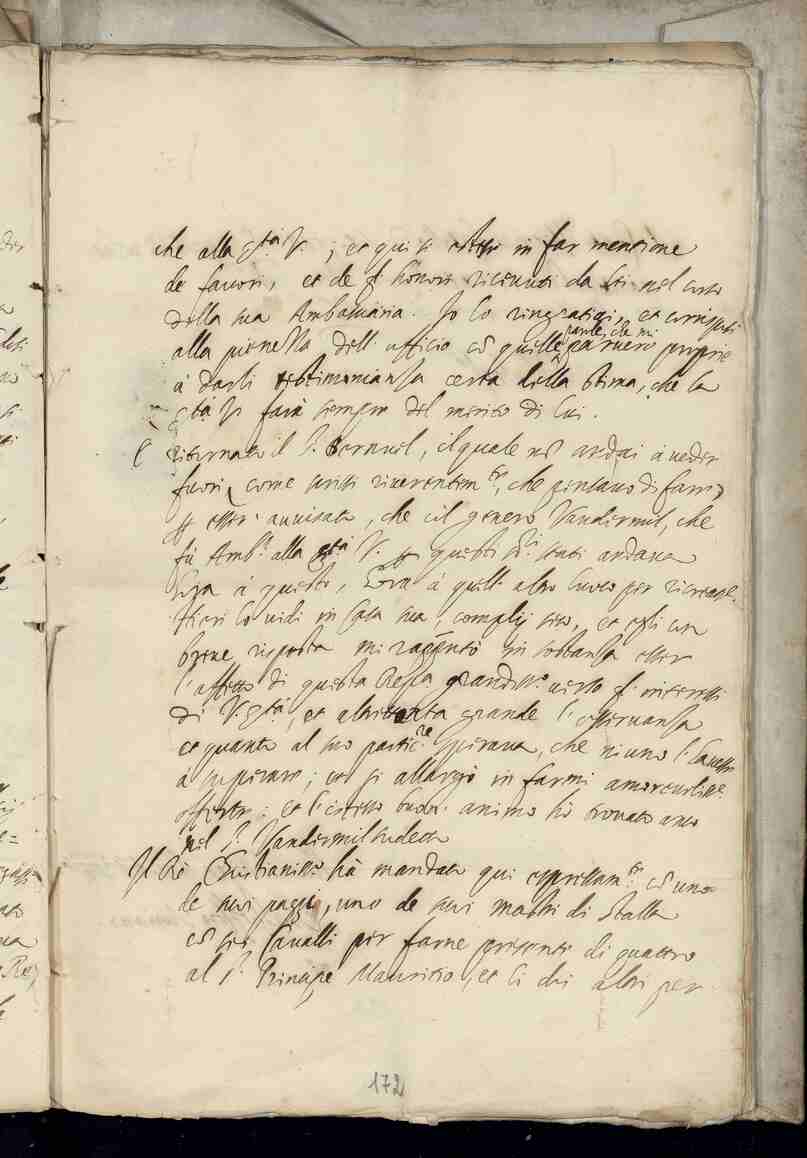 che alla S.tà V.; et qui si estese in far mentione
de favori, et de gl'honori ricevuti da lei nel corso
della sua Ambasciaria. Io lo ringratiai, et corrisposi
alla pienezza dell'ufficio cō quelle parole, che mi parvero proprie
à darli testimonianza certa della stima, che la
S.tà V. farà sempre del merito di lui.
È ritornato il S.r Barnvel, il quale nō andai à veder
fuori, come scrissi riverentem.te, che pensavo di fare,
p esser avvisato, che col genero Vandermil, che
fù Amb.r alla S.tà V. p questi SS.ri stati andava
hora à questo, hora à quell'altro luoco per ricrearse.
Hieri lo vidi in casa sua, complij seco, et egli con
breve risposta mi rappresentò in sostanza esser
l'affetto di questa Rep.ca grandiss.o verso gl'interessi
di V. S.tà, et altretanta grande l'osservanza
et quanto al suo partic.re sperava, che niuno l'havesse
à superare; et si allargò in farmi amorevoliss.e
offerte; et l'istesso buon animo hò trovato anco
nel S.r Vandermil sudetto
Il Rè Christianiss.o hà mandato qui espressam.te cō uno
de suoi paggi, uno de suoi mastri di stalla
cō sei Cavalli per farne presente di quattro
al S.r Principe Mauritio, et li doi altri per
172